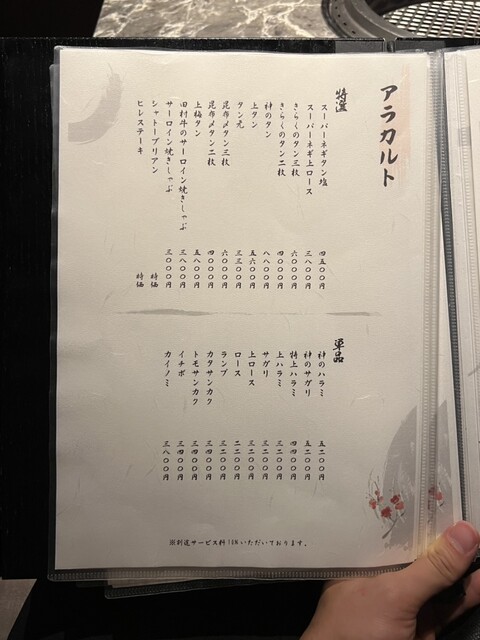 アラカルト
特選
スーパーネギタン塩 四五〇〇円
スーパーネギ上ロース 三八〇〇円
きらくのタン三枚 六〇〇〇円
きらくのタン二枚 四〇〇〇円
神のタン 八〇〇〇円
上タン 五六〇〇円
タン元 三三〇〇円
昆布〆タン三枚 六〇〇〇円
昆布〆タン二枚 四〇〇〇円
上梅タン 五八〇〇円
田村牛のサーロイン焼きしゃぶ 三八〇〇円
サーロイン焼きしゃぶ 三〇〇〇円
シャトーブリアン 時価
ヒレステーキ 時価
単品
神のハラミ 五二〇〇円
神のサガリ 五二〇〇円
特上ハラミ 四四〇〇円
上ハラミ 三二〇〇円
サガリ 三二〇〇円
上ロース 三二〇〇円
ロース 二二〇〇円
ランプ 三二〇〇円
カタサンカク 三四〇〇円
トモサンカク 三四〇〇円
イチボ 三四〇〇円
カイノミ 三八〇〇円
※別途サービス料10%いただいております。